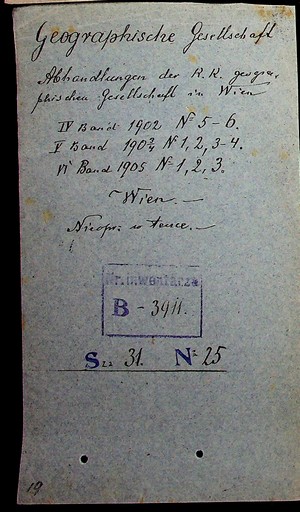 Geographische Gesellschaft
Abhandlungen der K. K. geogra-
phischen Gesellschaft in Wien
IV Band 1902 № 5-6.
V Band 1903/4 № 1, 2, 3-4.
VI Band 1905 № 1, 2, 3.
Wien. —
Nieopr. w tece. —
Nr. inwentarza
B - 3911.
Sza 31. № 25
19